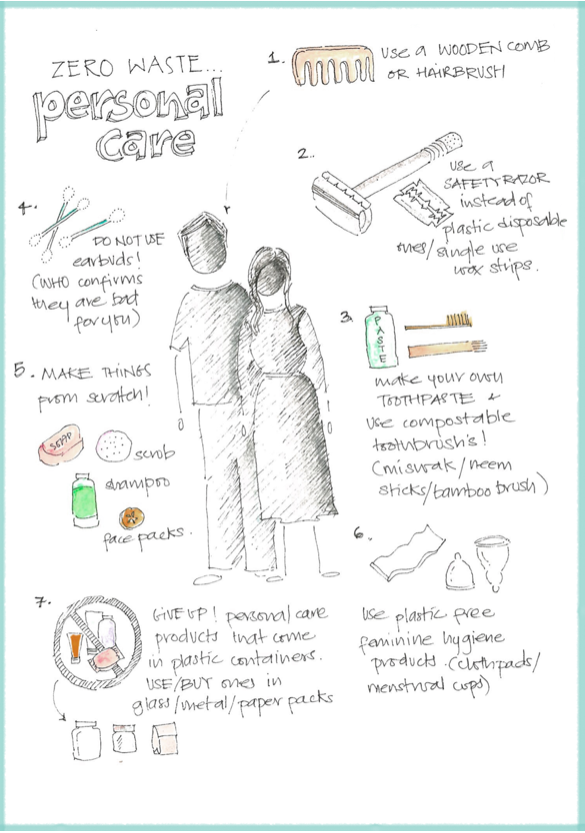 ZERO WASTE...
personal
care
1. USE a WOODEN COMB
OR HAIRBRUSH
2.
USE a
SAFETY RAZOR
instead of
plastic disposable
ones/single use
wax strips.
3.
PASTE
make your own
TOOTHPASTE &
USE compostable
toothbrush's!
(miswak/neem
sticks/bamboo brush)
4.
DO NOT USE
earbuds!
(WHO confirms
they are bad
for you)
5. MAKE THINGS
from scratch!
SOAP
scrub
shampoo
face packs.
6.
use plastic free
feminine hygiene
products. (clothpads/
menstrual cups)
7.
GIVE UP! personal care
products that come
in plastic containers.
USE/BUY ones in
glass/metal/paper packs